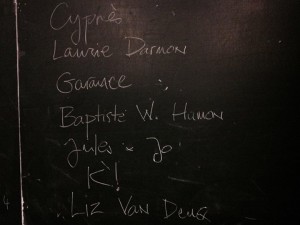 Cyprès
Laurie Darmon
Garance
Baptiste W. Hamon
Jules & Jo
K!
Liz Van Deuq
4